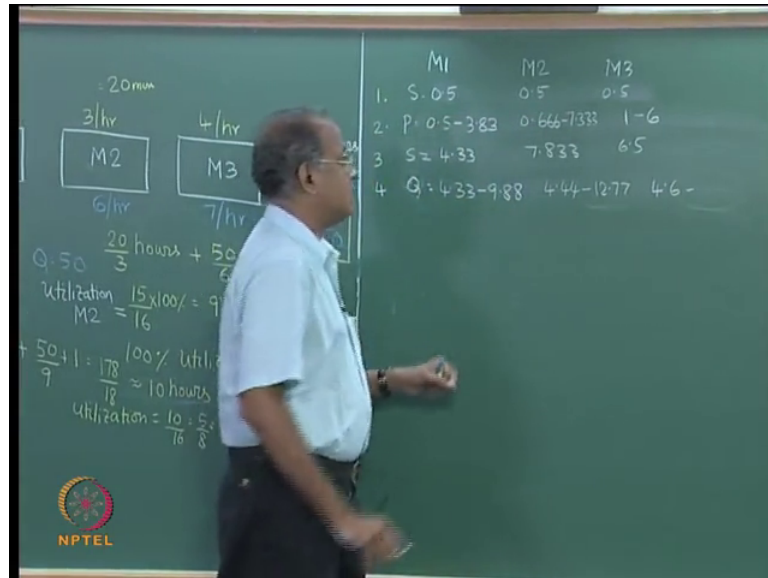 = 20 mins
3/hr
4/hr
M2
M3
6/hr
7/hr
Q. 50
20/3 hours + 50/6
Utilization M2 = 15/16 x 100% = 9
+ 50/9 + 1 = 178/18 ≈ 10 hours
100% Utili
Utilization = 10/16 = 5/8 =
M1 M2 M3
1. S = 0.5 0.5 0.5
2. P = 0.5 - 3.83 0.666 - 7.333 1 - 6
3 S = 4.33 7.833 6.5
4 Q = 4.33 - 9.88 4.44 - 12.77 4.6 -
NPTEL